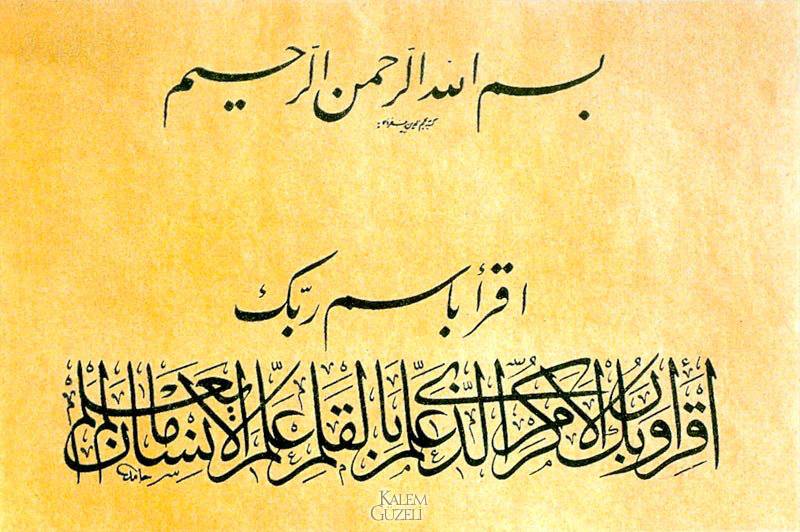 بسم الله الرحمن الرحيم
اقرأ باسم ربّك
اقرأ وربك الاكرم الّذى علّم بالقلم علّم الانسان ما لم يعلم
حامد
KALEM
GÜZELİ